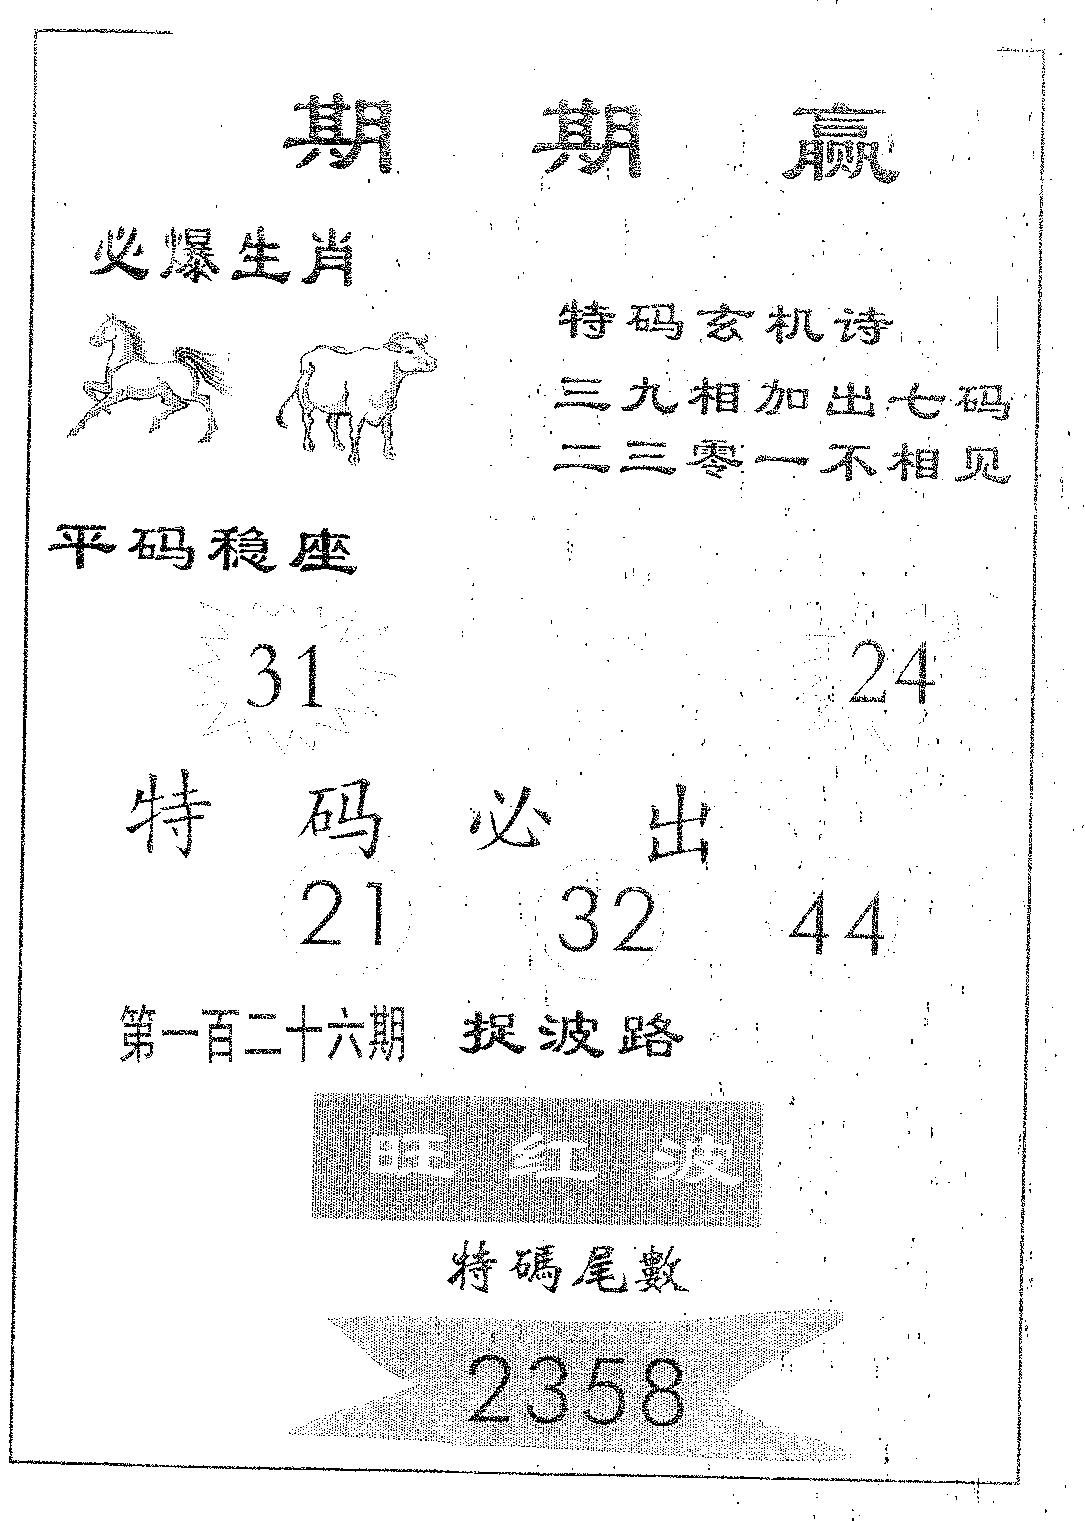 期期赢
必爆生肖
特码玄机诗
三九相加出七码
二三零一不相见
平码稳座
31 24
特码必出
21 32 44
第一百二十六期 捉波路
旺红波
特碼尾數
2358